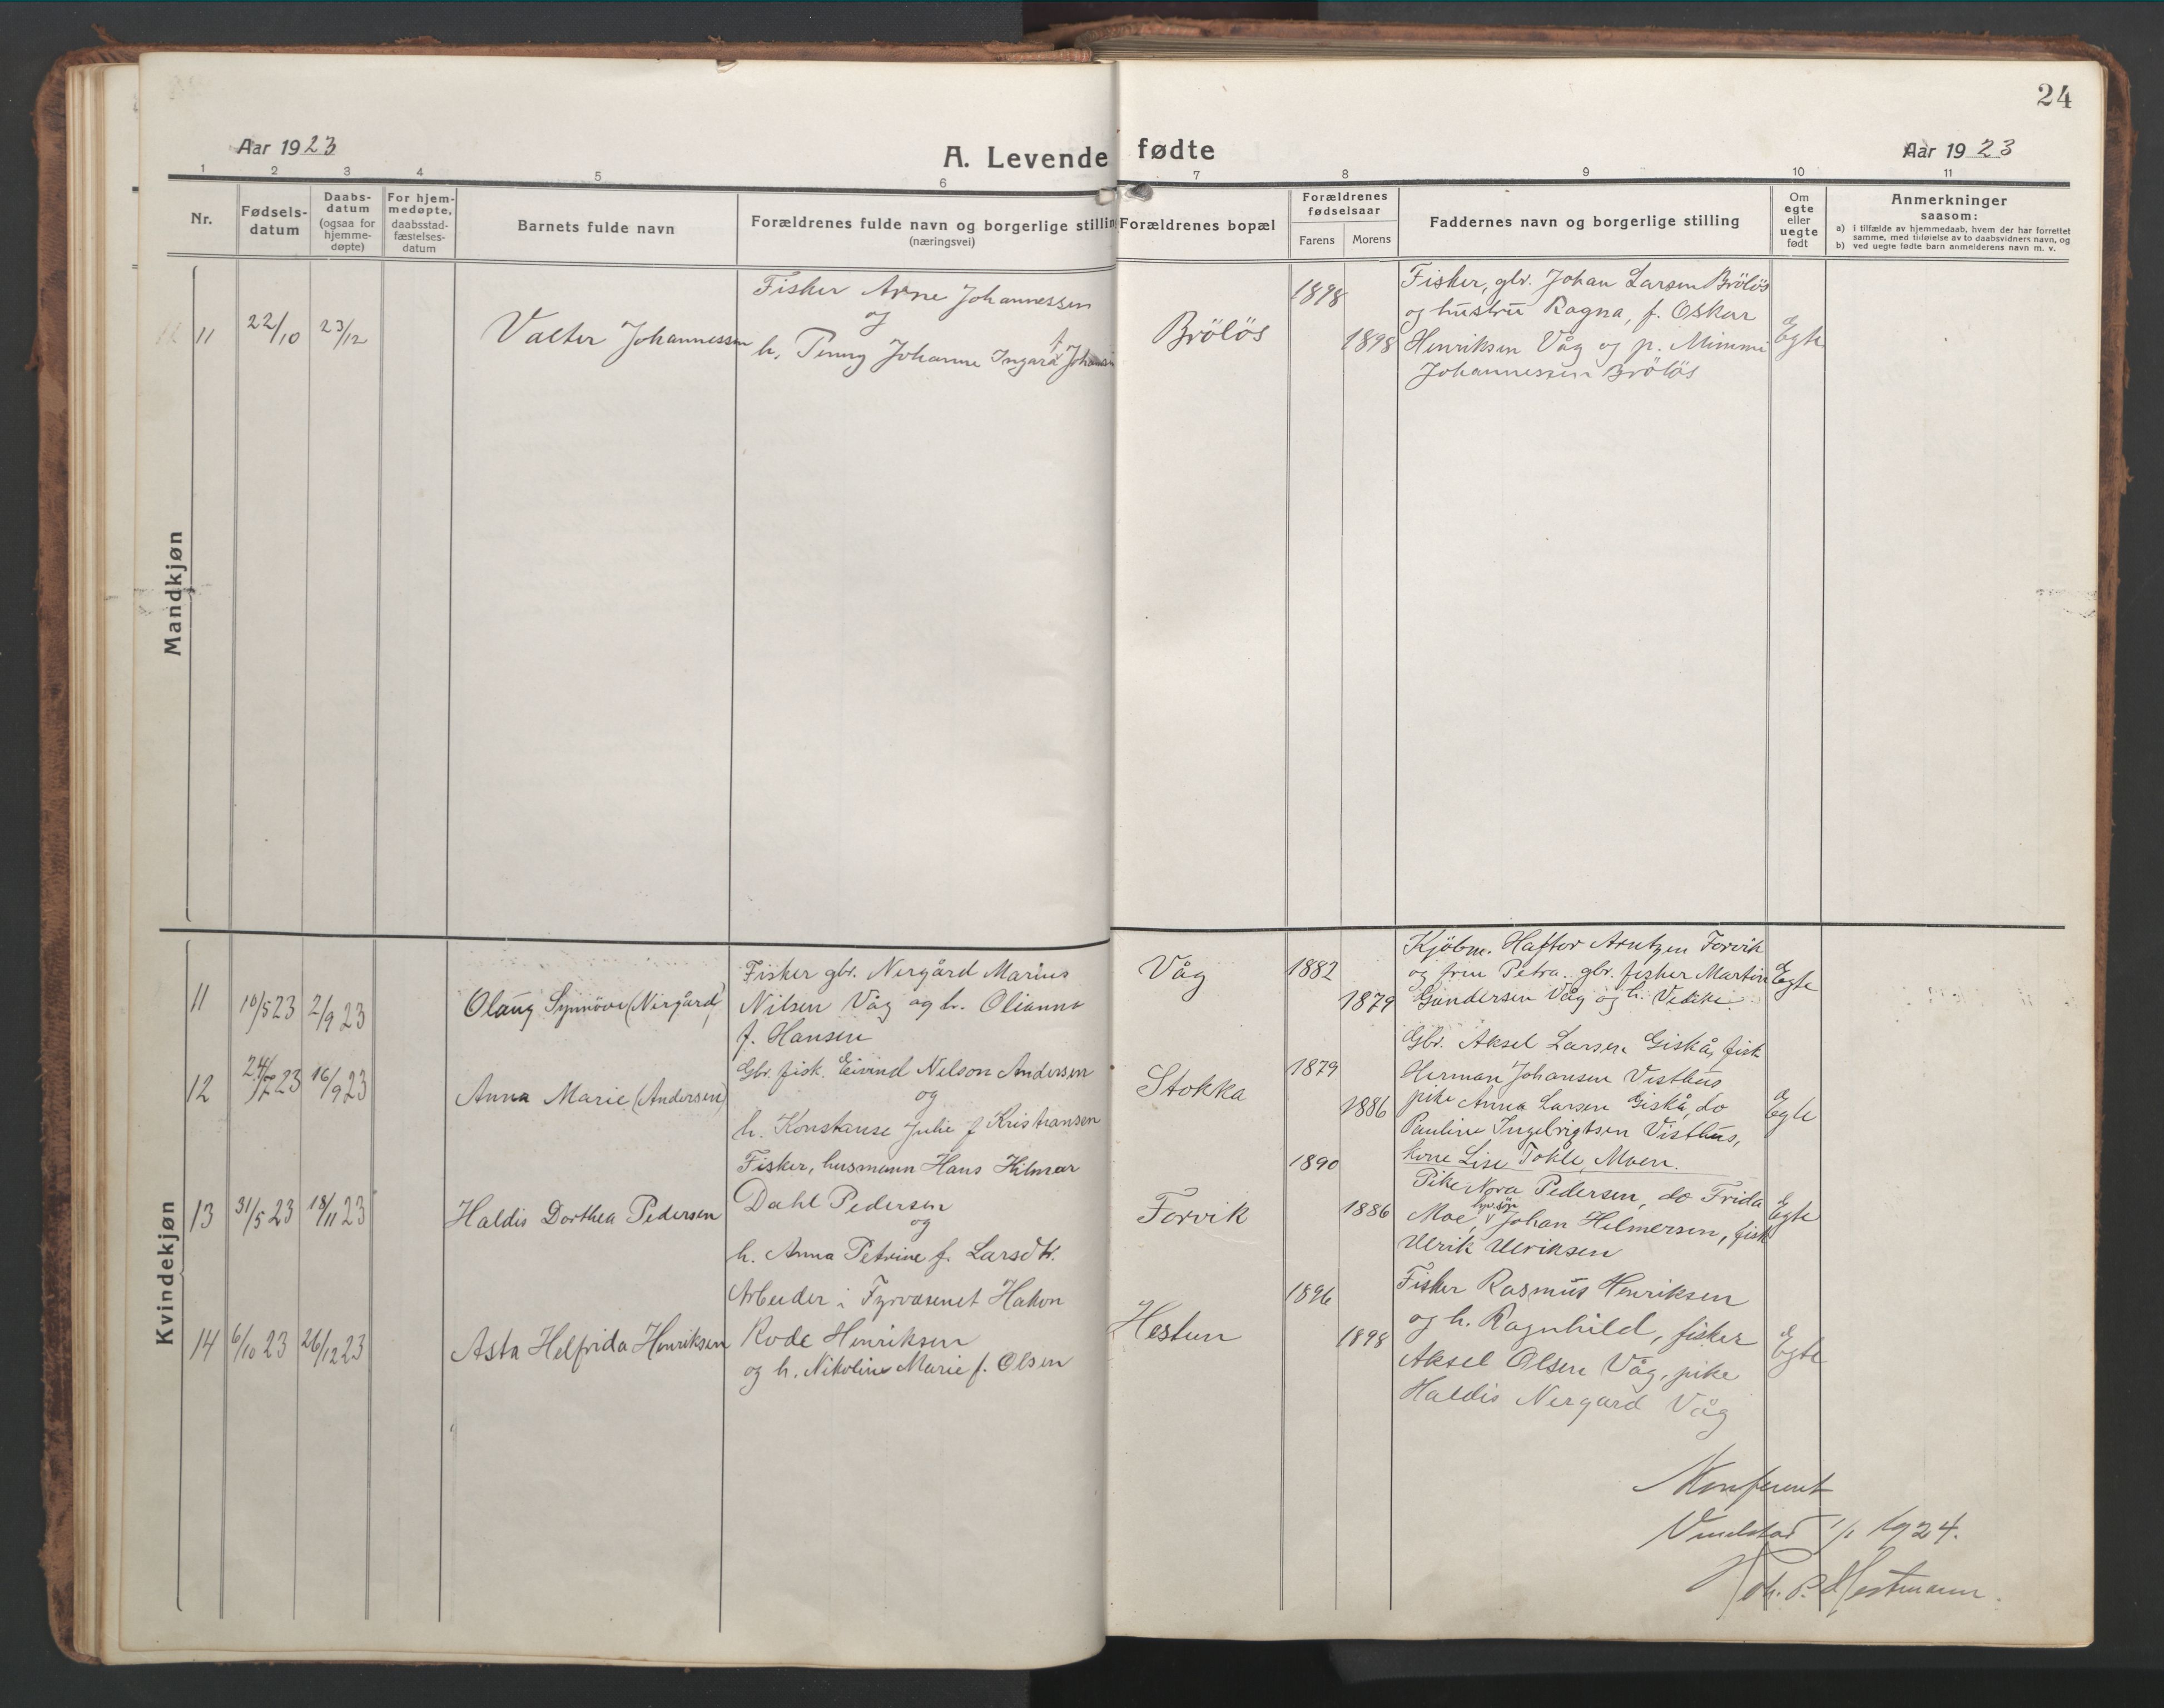 24
Aar 1923
A. Levende fødte
Aar 1923
1 2 3 4 5 6 7 8 9 10 11
Nr.
Fødsels-
datum
Daabs-
datum
(ogsaa for
hjemme-
døpte)
For hjem-
medøpte,
daabsstad-
fæstelses-
datum
Barnets fulde navn
Forældrenes fulde navn og borgerlige stilling
(næringsvei)
Forældrenes bopæl
Forældrenes
fødselsaar
Farens Morens
Faddernes navn og borgerlige stilling
Om
egte
eller
uegte
født
Anmerkninger
saasom:
a) i tilfælde av hjemmedaab, hvem der har forrettet
samme, med tilføielse av to daabsvidners navn, og
b) ved uegte fødte barn anmelderens navn m. v.
Mandkjøn
11
22/10
23/12
Valter Johannessen
Fisker Arne Johannessen
og
h. Penny Johanne Ingara f.
Bröløs
1898
1898
Fisker, gbr. Johan Larsen Bröløs
og hustru Ragna, f. Oskar
Henriksen Våg og p. Mimmi
Johannessen Bröløs
Egte
Kvindekjøn
11
10/5 23
2/9 23
Olaug Synnöve (Nergård)
Fisker gbr. Nergård Marius
Nilsen Våg og h. Olianna
f. Hansen
Våg
1882
1879
Kjöbm. Haftor Arntzen Forvik
og frue Petra. gbr. fisker Martin
Gundersen Våg og h.
Egte
12
24/7 23
16/9 23
Anna Marie (Andersen)
Gbr. fisk. Eivind Nelson Andersen
og
h. Konstanse Julie f Kristiansen
Stokka
1879
1886
Gbr. Aksel Larsen Giskå, fisk
Herman Johansen Visthus
pike Anna Larsen Giskå, do
Pauline Ingebrigtsen Visthus,
kone Lise Tokle, Moen.
Egte
13
31/5 23
18/11 23
Haldis Dorthea Pedersen
Fisker, husmann Hans Hilmar
Dahl Pedersen
og
h. Anna Petrine f. Larsdtr.
Forvik
1890
1886
Pike Nora Pedersen, do Frida
Moe, Johan Hilmersen, fisk
Ulrik Ulriksen
Egte
14
6/10 23
26/12 23
Asta Helfrida Henriksen
Arbeider i Fyrvæsenet Hakon
Rode Henriksen
og h. Nikoline Marie f. Olsen
Hestun
1896
1898
Fisker Rasmus Henriksen
og h. Ragnhild, fisker
Aksel Olsen Våg, pike
Haldis Nergard Våg
Egte
Konferert
1/1 1924.
Joh. P. Hestmann.